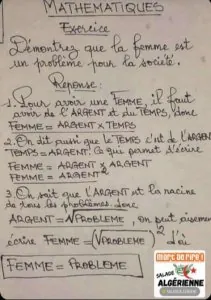 MATHEMATIQUES
Exercice
Démontrez que la femme est
un problème pour la société.
Reponse:
1. Pour avoir une FEMME, il faut
avoir de l'ARGENT et du TEMPS, donc
FEMME = ARGENT x TEMPS
2. On dit aussi que le TEMPS c'est de l'ARGENT
TEMPS = ARGENT. Ce qui permet d'écrire
FEMME = ARGENT x ARGENT
FEMME = ARGENT²
3. On sait que l'ARGENT est la racine
de tous les problèmes. donc
ARGENT = √PROBLEME, on peut aisement
écrire FEMME = (√PROBLEME)² d'où
FEMME = PROBLEME
MORT DE RIRE !
SALADE
ALGÉRIENNE